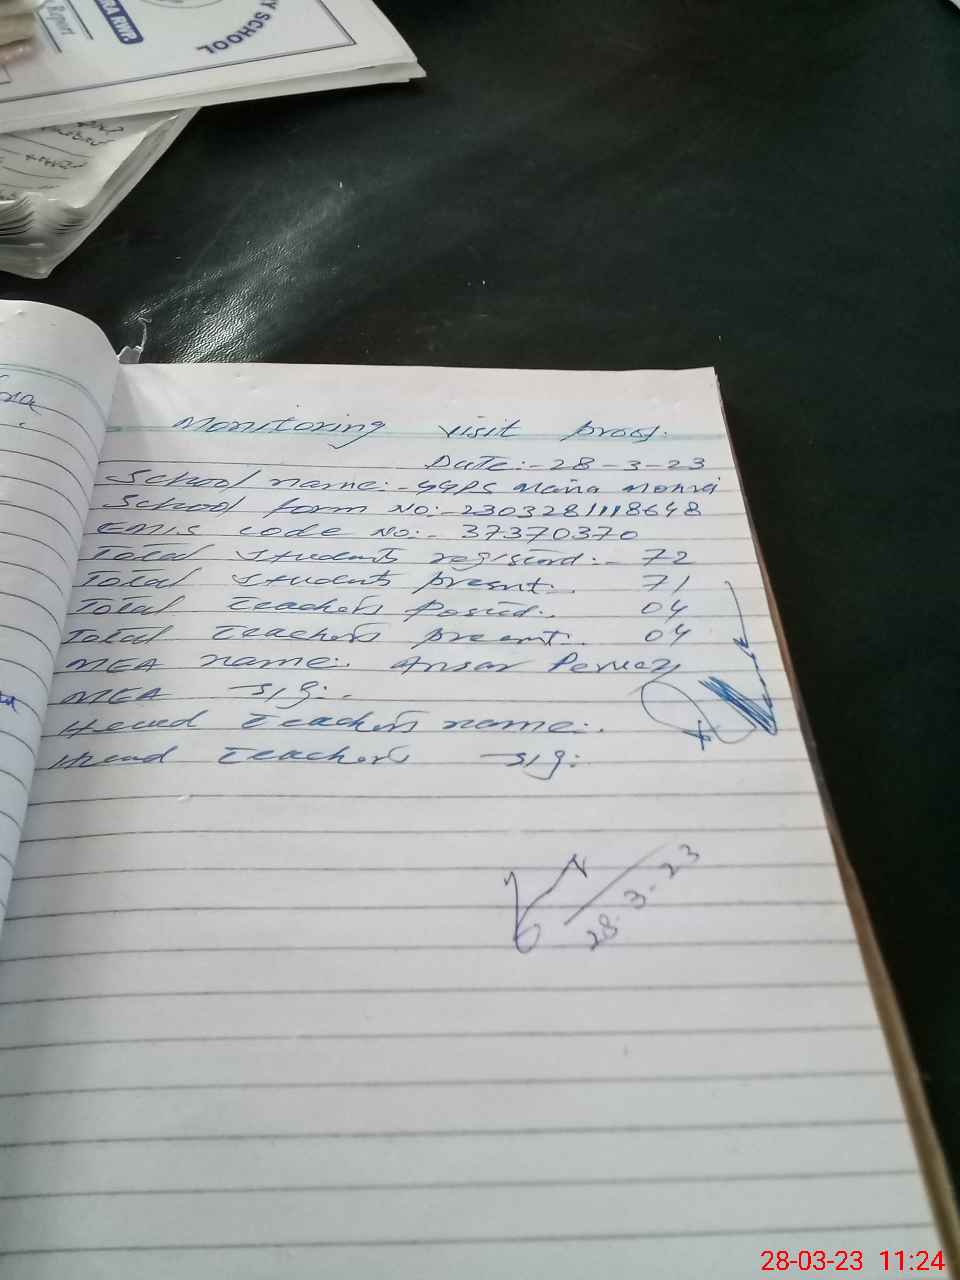 Y SCHOOL
RA RWP.
Report
Monitoring visit proof.
Date:- 28-3-23
School name:- GGPS Maira Mohra
School form No:- 2303281118648
EMIS code No:- 37370370
Total students registerd:- 72
Total students present:. 71
Total teachers Posted:. 04
Total teachers present:. 04
MEA name:. Ansar Pervez
MEA sig:.
Head teachers name:.
Head teachers sig:
28.3.23
28-03-23 11:24